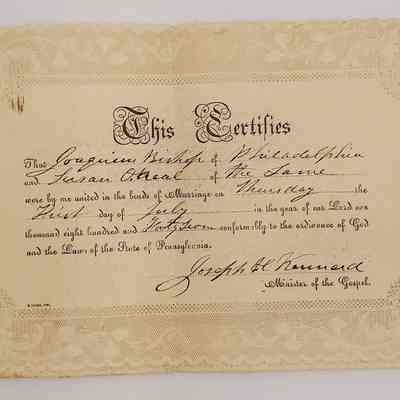 This Certifies
That Joaquim Bishop of Philadelphia
and Susan O'Neal of the Same
were by me united in the bonds of Marriage on Thursday the
First day of July in the year of our Lord one
thousand eight hundred and Fortyseven conformably to the ordinance of God
and the Laws of the State of Pennsylvania.
Joseph H. Kennard
Minister of the Gospel.